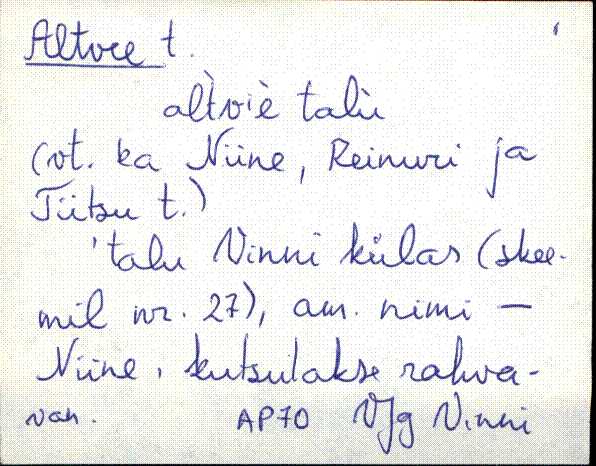 Altvee t.
al̀tvìè talù
(vt. ka Niine, Reinuri ja
Tiitsu t.)
'talu Vinni külas (skee-
mil nr. 27), am. nimi —
Niine, kutsutakse rahva-
van.
AP70 VJg Vinni